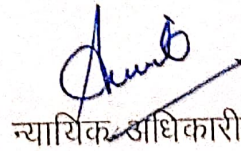 न्यायिक अधिकारी